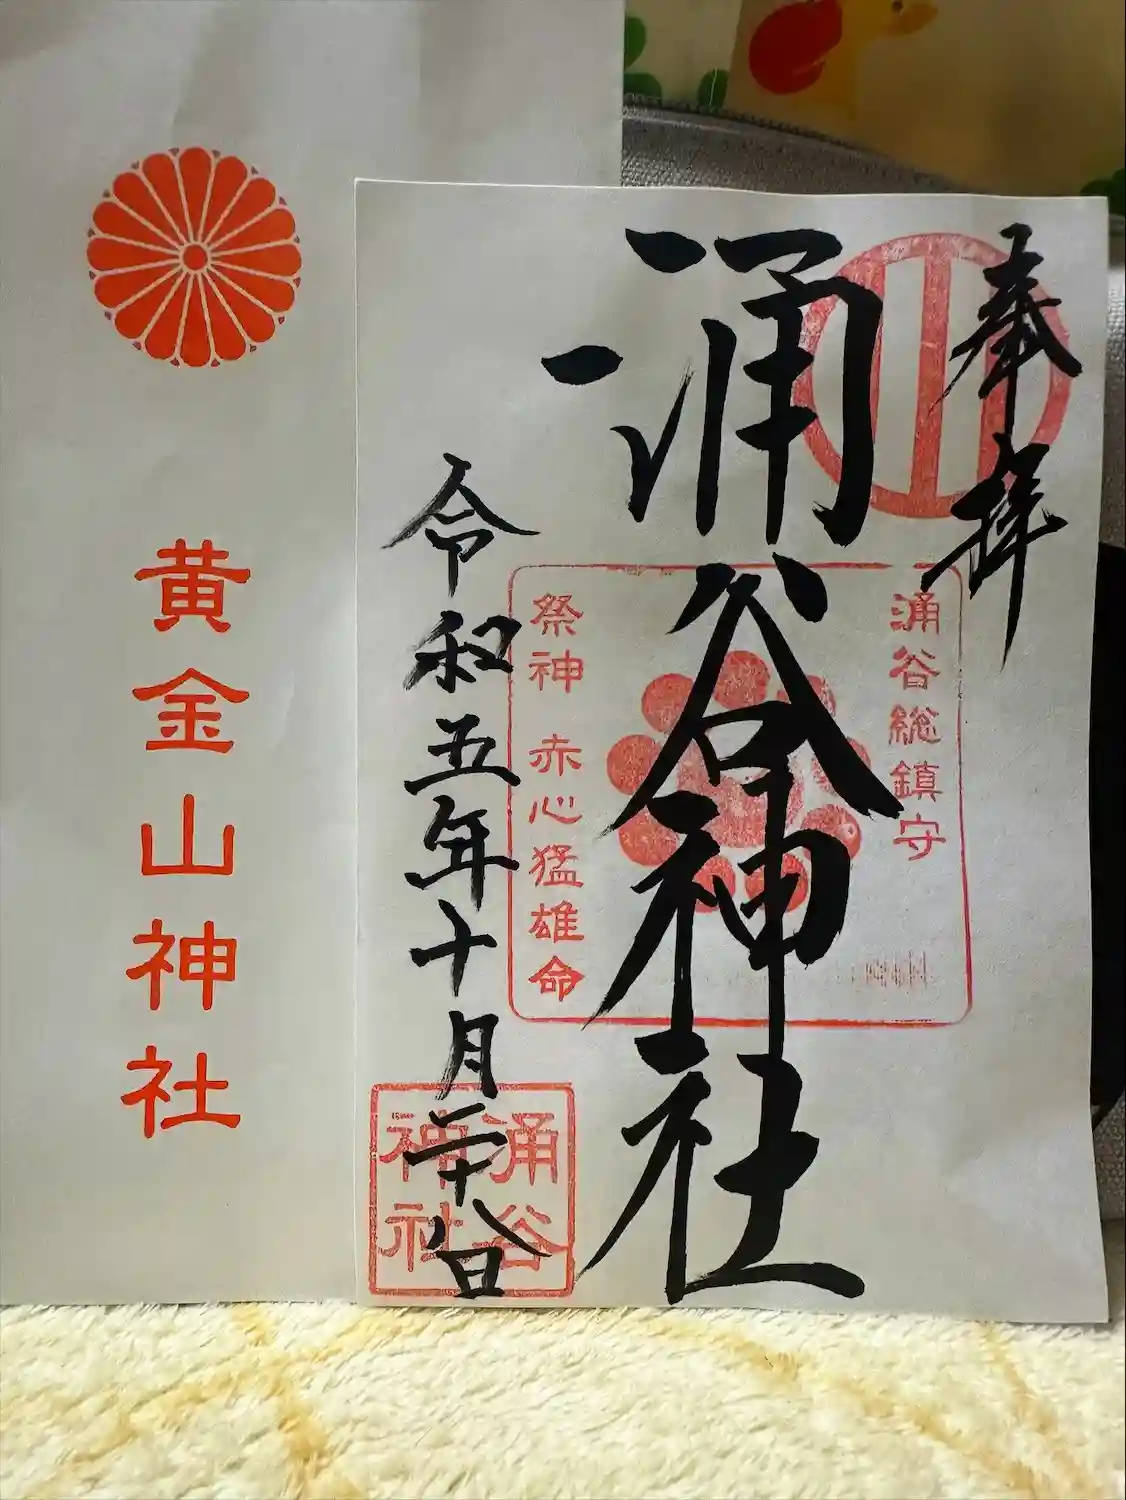 奉拝
涌谷神社
涌谷総鎮守
祭神 赤心猛雄命
令和五年十月二十八日
涌谷
神社
黄金山神社